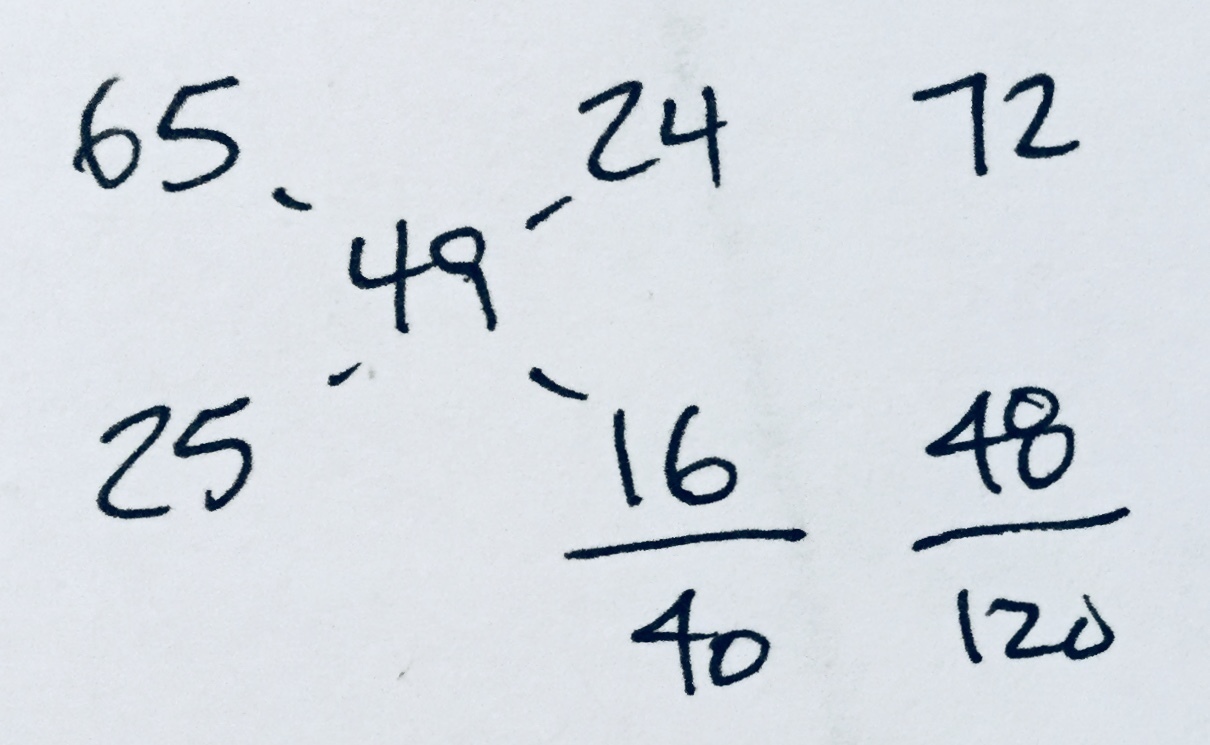 65 24 72
49
25 16 48
40 120